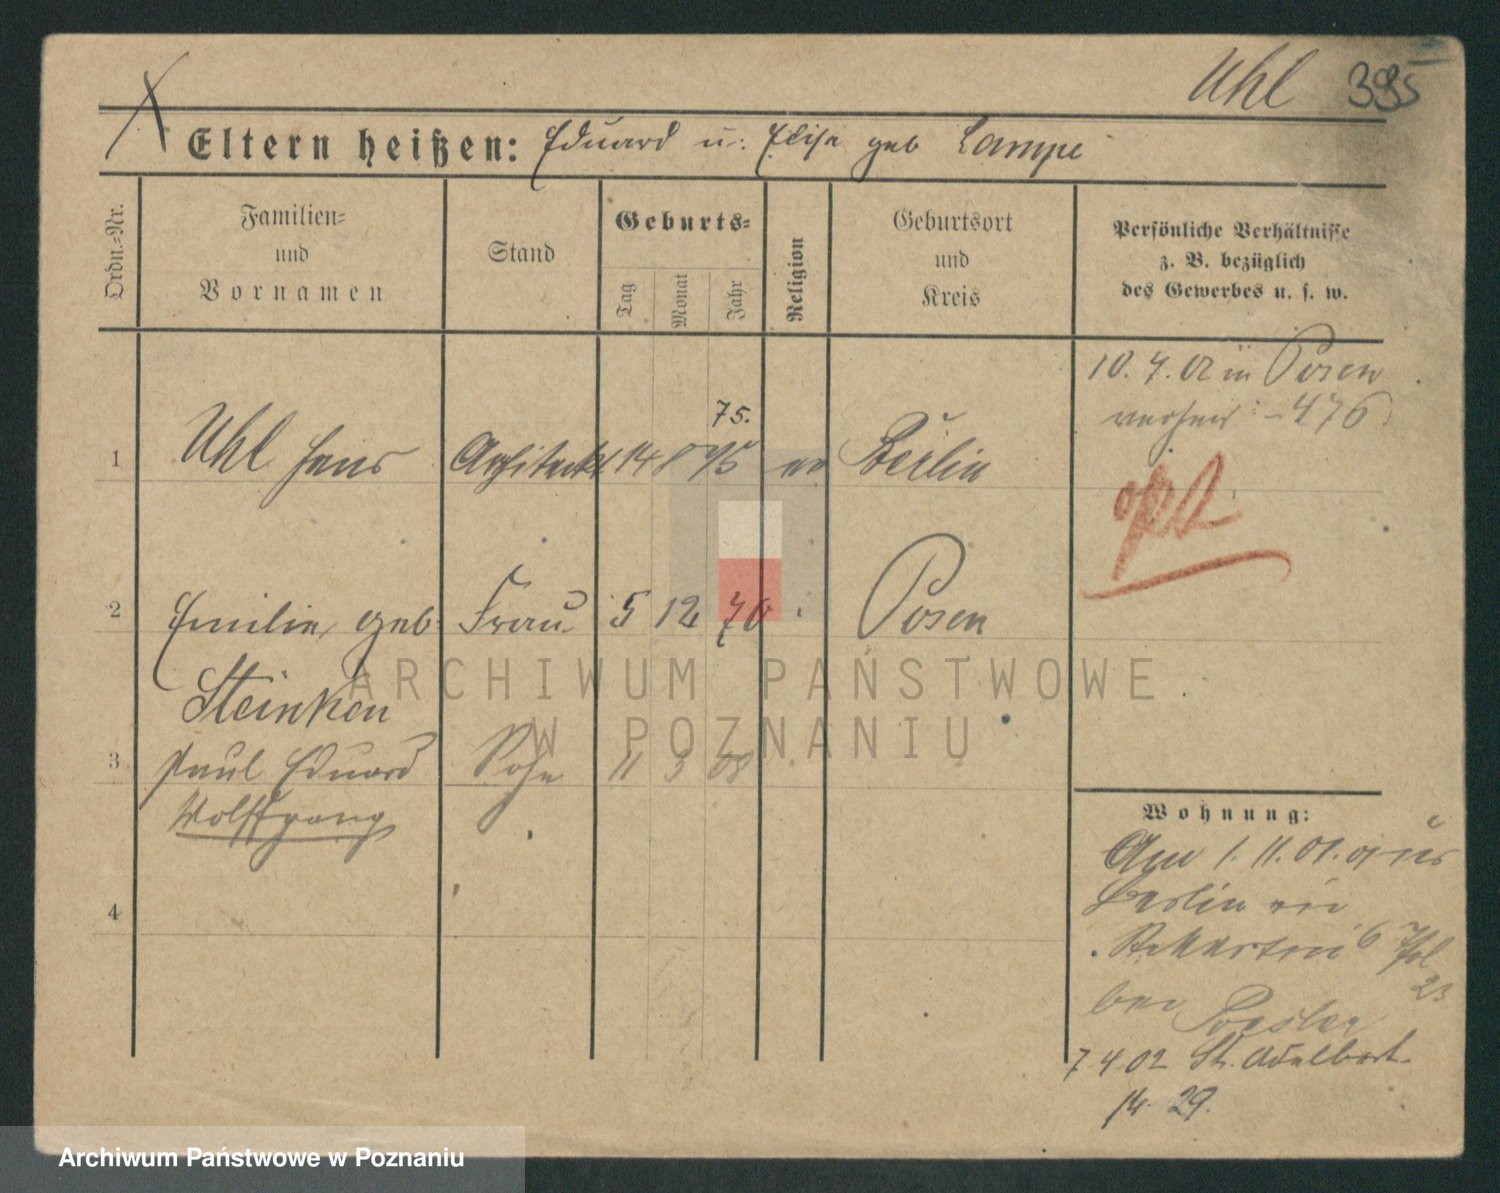 Uhl 395
Eltern heißen: Eduard u: Elise geb Lampe
Ordn.-Nr.
Familien- und Vornamen
Stand
Geburts-
Tag Monat Jahr
Religion
Geburtsort und Kreis
Persönliche Verhältnisse
z. B. bezüglich
des Gewerbes u. s. w.
10. 7. 02 in Posen
476
75.
1 Uhl Hans Architekt 14 8 75 ev Berlin
2 Emilie, geb. Frau 5 12 70 Posen
Steinken
3 Paul Eduard Sohn 11 3 08
Wolffgang
4
Wohnung:
Am 1. 11. 01. aus
Berlin
6
23
bei
7 4 02 St. Adalbert
14 29.
ARCHIWUM PAŃSTWOWE
W POZNANIU
Archiwum Państwowe w Poznaniu